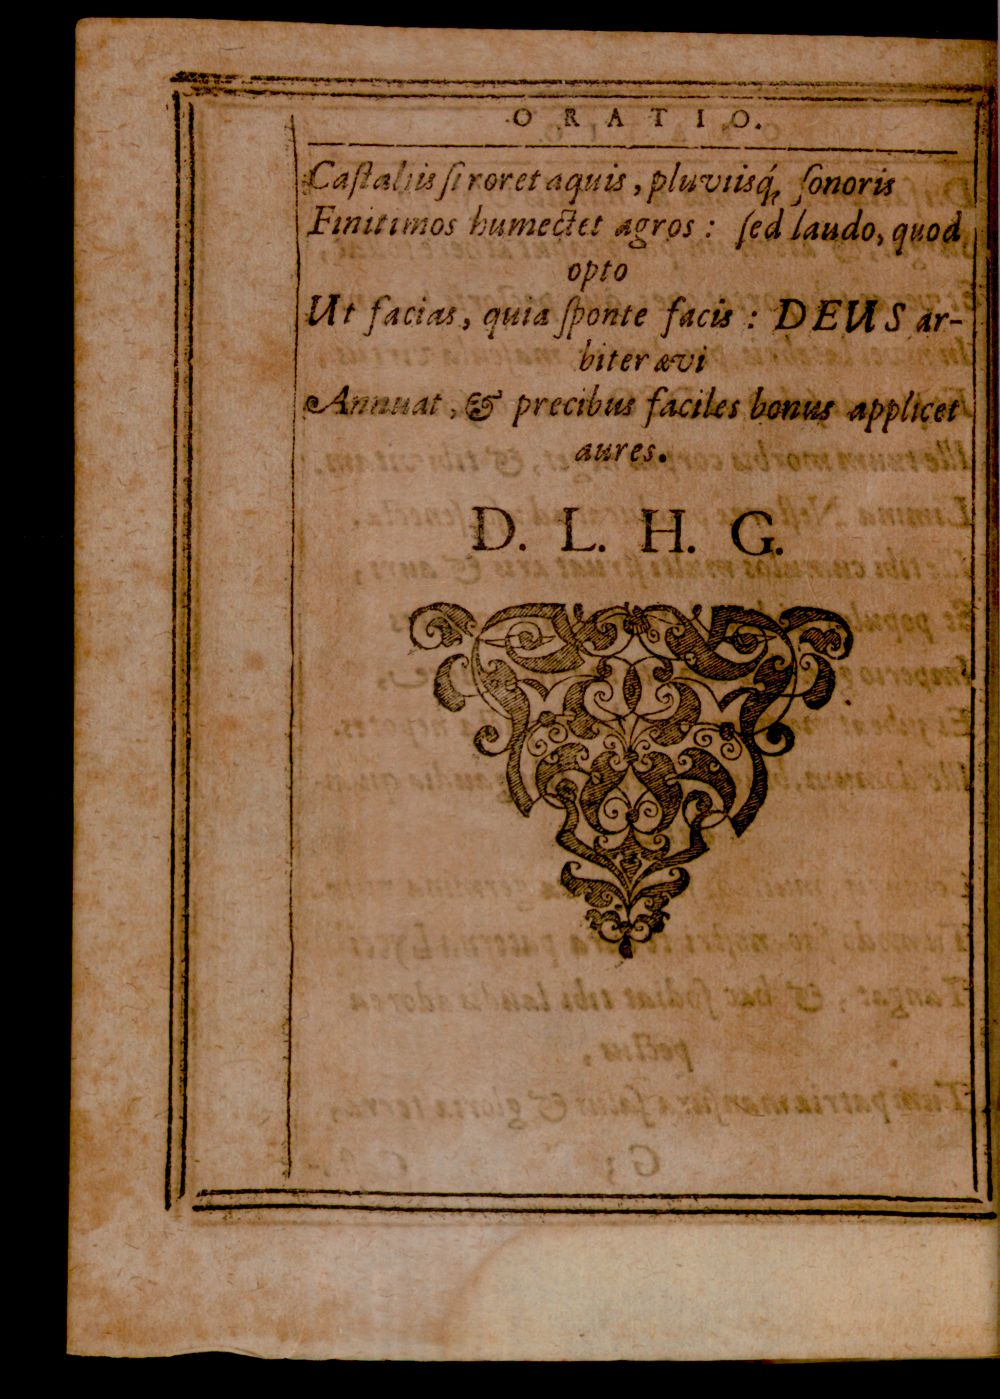 ORATIO.
Caſtaliis ſi roret aquis, pluviisq́; ſonoris
Finitimos humectet agros: ſed laudo, quod
opto
Ut facias, quia ſponte facis: DEUS ar-
biter ævi
Annuat, & precibus faciles bonus applicet
aures.
D. L. H. G.